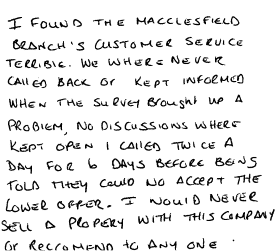 I FOUND THE MACCLESFIELD
BRANCH'S CUSTOMER SERVICE
TERRIBLE. WE WHERE NEVER
CALLED BACK OR KEPT INFORMED
WHEN THE SURVEY BROUGHT UP A
PROBLEM, NO DISCUSSIONS WHERE
KEPT OPEN I CALLED TWICE A
DAY FOR 6 DAYS BEFORE BEING
TOLD THEY COULD NO ACCEPT THE
LOWER OFFER. I WOULD NEVER
SELL A PROPERY WITH THIS COMPANY
OR RECROMEND TO ANY ONE.